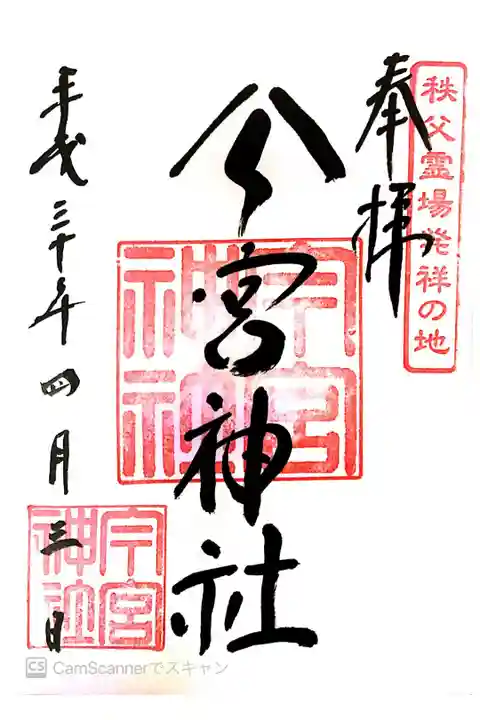 秩父霊場発祥の地
奉拝
今宮神社
今宮神社
平成三十年四月三日
今宮神社
CS CamScannerでスキャン